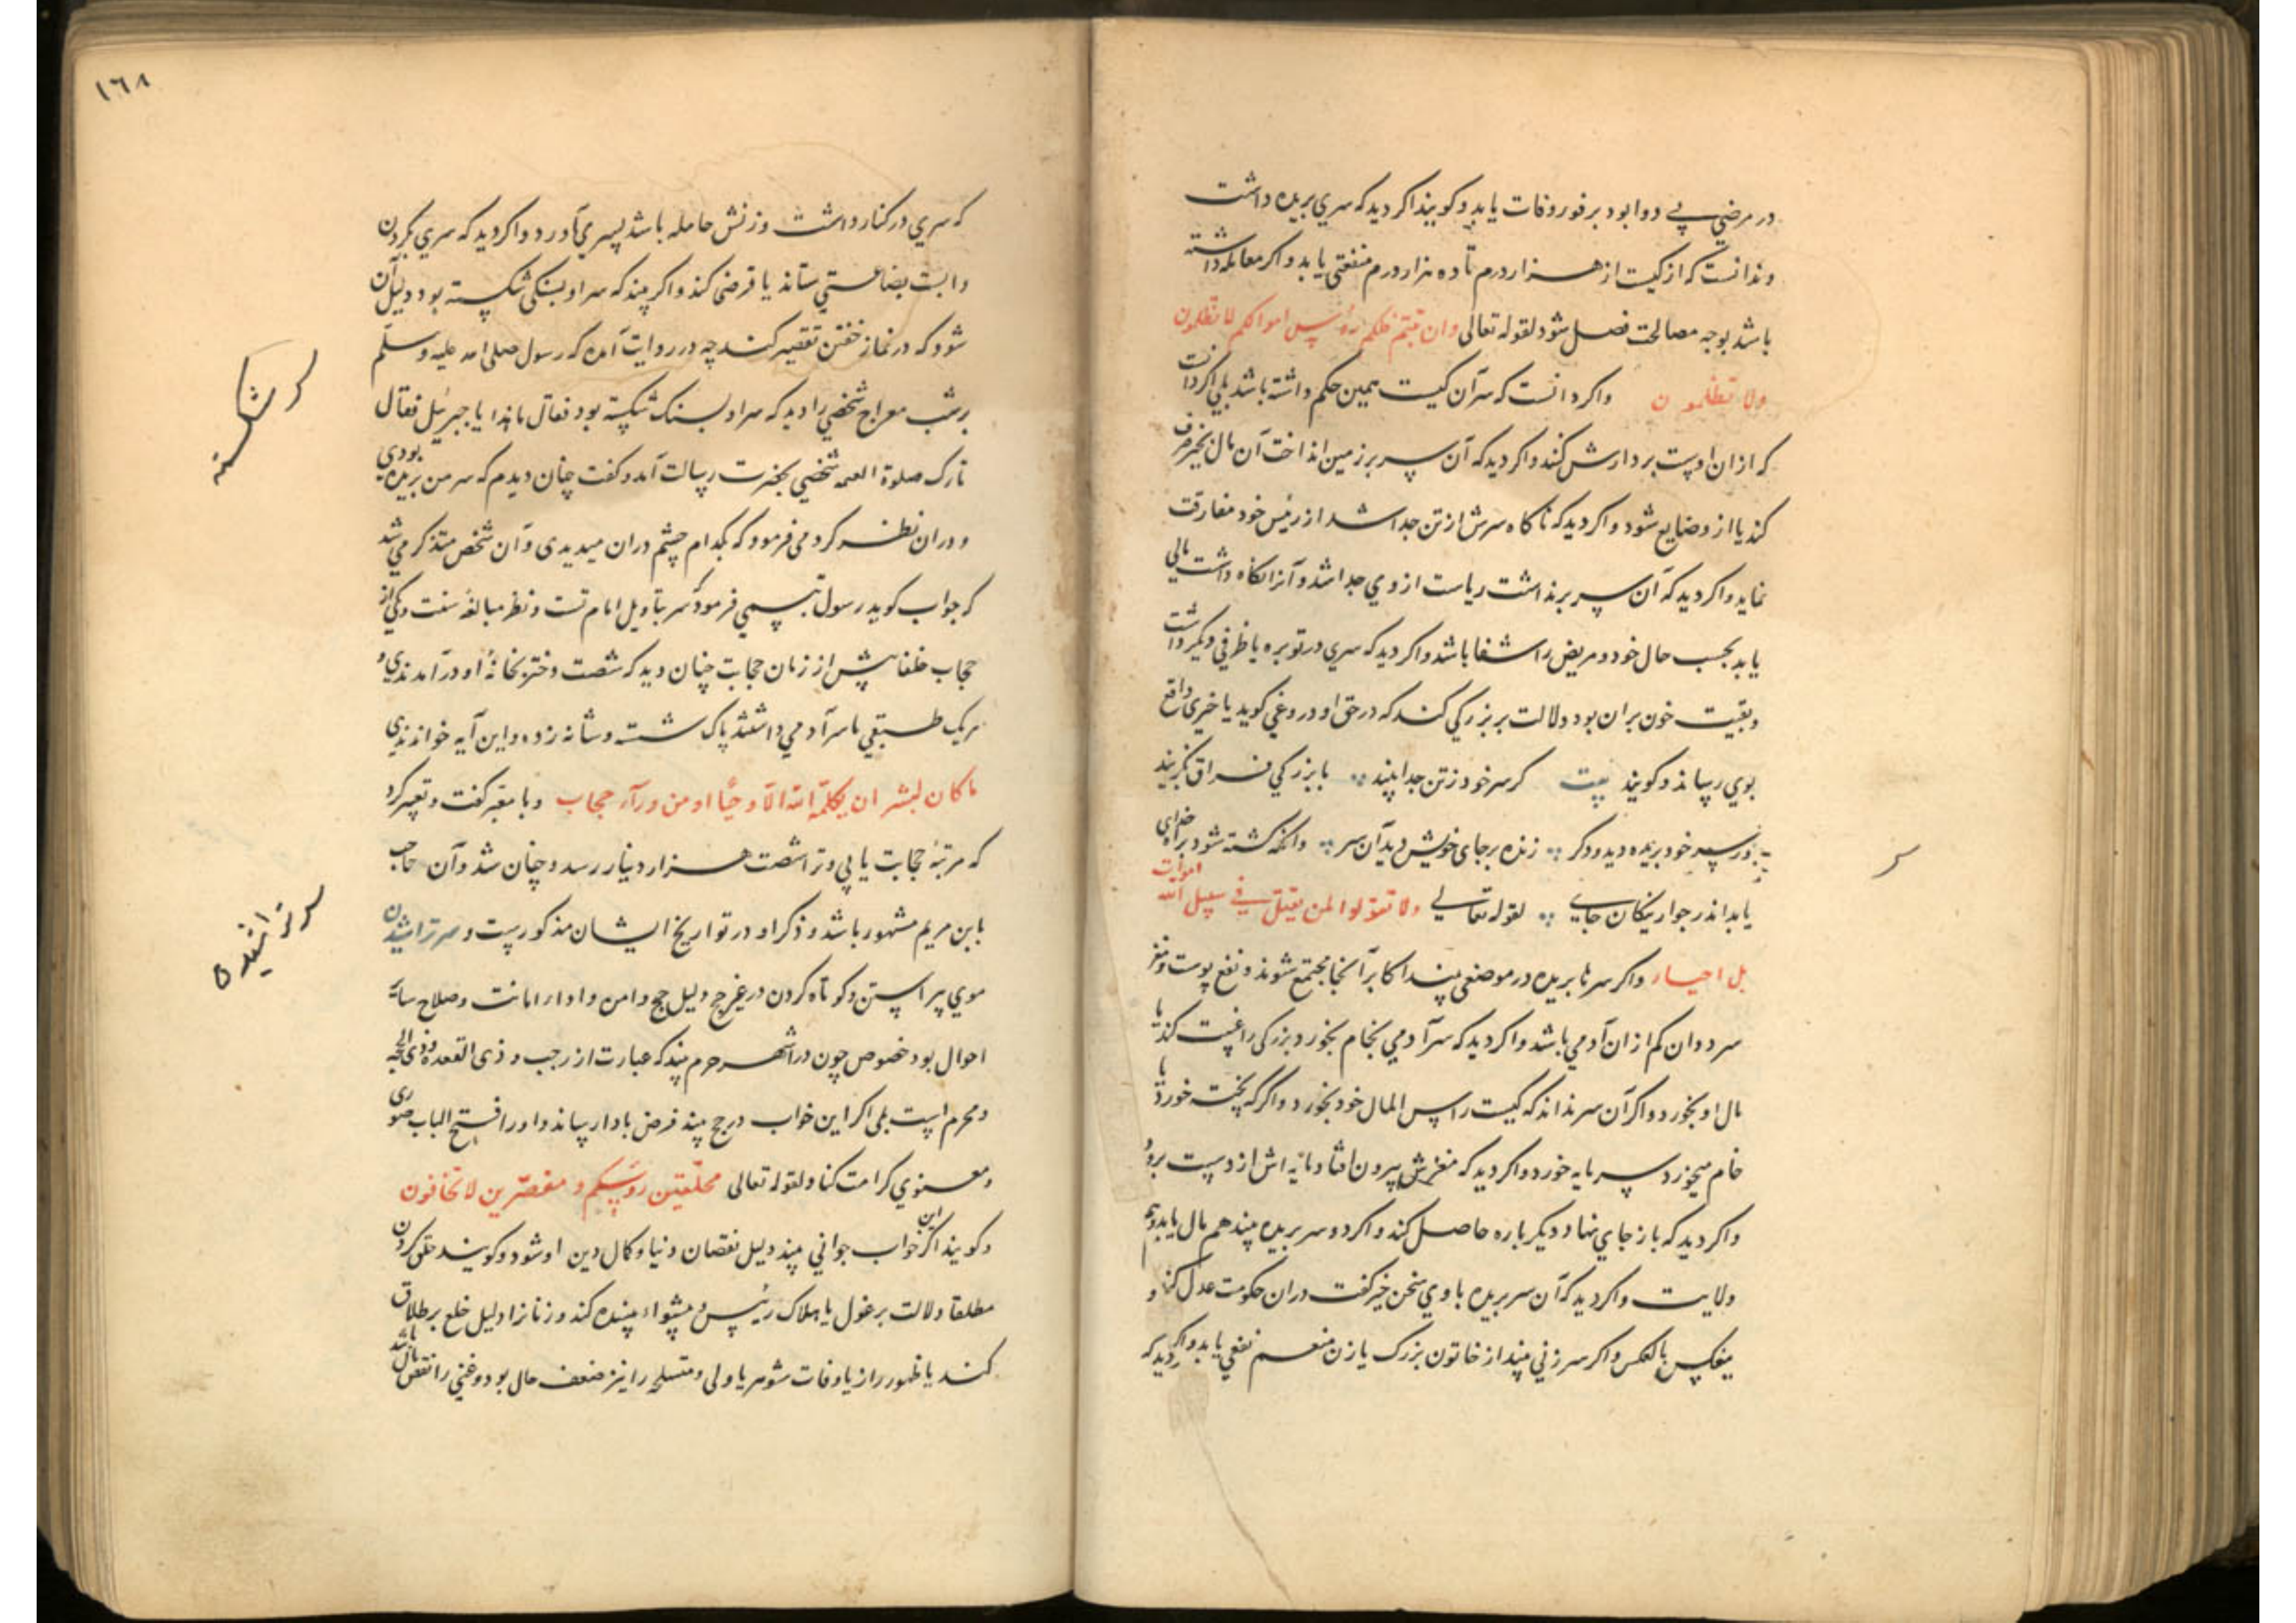 در مرضی بی دوا بود بر فور وفات یابد و کویند اکر دید که سری بریده داشت
و ندانست که از کیست از هزار درم تا ده هزار درم منفعتی یابد و اکر معامله داشته
باشد بوجه مصالحت فصل شود لقوله تعالی وان تبتم فلکم رؤس اموالکم لا تظلمون
ولا تظلمون واکر دانست که سر آن کیست همین حکم داشته باشد بلی اکر دانست
که از ان اوست بر دارش کنند و اکر دید که آن سر بر زمین انداخت آن مال بخیر صرف
کند یا از و ضایع شود و اکر دید که ناکاه سرش از تن جدا شد از رئیس خود مفارقت
نماید و اکر دید که آن سر برنداشت ریاست از وی جدا شد و آنرا نکاه داشت مالی
یابد بحسب حال خود و مریض را شفا باشد و اکر دید که سری در توبره یا ظرفی دیکر داشت
و بقیت خون بران بود دلالت بر بزرکی کند که در حق او دروغی کوید یا خبری واقع
بوی رساند و کویند بیت کر سر خود ز تن جدا بیند با بزرکی فراق بکزیند
ور سر خود بریده دید و دکر زنده بر جای خویش دید آن سر وانکه کشته شود براه خدای
یابد اندر جوار نیکان جای لقوله تعالی ولا تقولوا لمن یقتل فی سبیل الله اموات
بل احیاء واکر سرها بریده در موضعی بیند اکابر آنجا مجتمع شوند و نفع پوست و مغز
سر ددان کم از ان آدمی باشد و اکر دید که سر آدمی بخام بخورد بزرکی را غیبت کند یا
مال او بخورد و اکر آن سر نداند که کیست راس المال خود بخورد و اکر که پخت خورد یا
خام میخورد سرمایه خورد و اکر دید که مغزش بیرون افتاد مایه اش از دست برود
واکر دید که باز جای نهاد دیکر باره حاصل کند و اکر دو سر بریده بیند هم مال یابد و هم
ولایت و اکر دید که آن سر بریده با وی سخن خیر کفت دران حکومت عدل کند و
بالعکس و اکر سر زنی بیند از خاتون بزرک یا زن منعم نفعی یابد و اکر دید که
سر
١٦٨
که سری در کنار داشت و زنش حامله باشد پسری آورد و اکر دید که سری بکردن
وابست بضاعتی ستاند یا قرضی کند و اکر بیند که سر او بسنکی شکسته بود دلیل آن
شود که در نماز خفتن تقصیر کند چه در روایت آمده که رسول صلی الله علیه وسلم
بر شب معراج شخصی را دید که سر او بسنک شکسته بود فقال ما هذا یا جبرئیل فقال
تارک صلوة العمه شخصی بحضرت رسالت آمد و کفت چنان دیدم که سر من بریده بودی
و دران نظر کردمی فرمود که بکدام چشم دران میدیدی و آن شخص متذکر می شد
که جواب کوید رسول تبسمی فرمود سر بتاویل امام تست و نظر مبالغه سنت و یکی از
حجاب خلفا پیش از زمان حجابت چنان دید که شصت دختر بخانه او در آمدندی و
هر یک طبقی با سر آدمی داشتند پاک شسته و شانه زده و این آیه خواندندی
ما کان لبشر ان یکلمه الله الا وحیا او من ورآء حجاب وبا معبر کفت و تعبیر کرد
که مرتبه حجابت یابی و ترا شصت هزار دینار رسد و چنان شد و آن حاجب
بابن مریم مشهور باشد و ذکر او در تواریخ ایشان مذکورست و سر تراشیدن
موی پیراستن و کوتاه کردن در غیر حج دلیل حج و امن و ادا را مانت و صلاح سایر
احوال بود خصوص چون در اشهر حرم بیند که عبارت از رجب و ذی القعده و ذی الحجه
و محرم است بلی اکر این خواب در حج بیند فرض بادا رساند و او را فتح الباب صوری
و معنوی کرامت کناد لقوله تعالی محلقین رؤسکم و مقصرین لا تخافون
و کویند اکر این خواب جوانی بیند دلیل نقصان دنیا و کمال دین او شود و کویند حلق کردن
مطلقا دلالت بر عزل یا هلاک رئیس و پیشواء بیننده کند و زنانرا دلیل خلع بر طلاق
کند یا ظهور راز یا وفات شوهر یا ولی و متسلحه را نیز ضعف حال بود و غنی را نقص مال باشد
سر شکسته
سر تراشیده